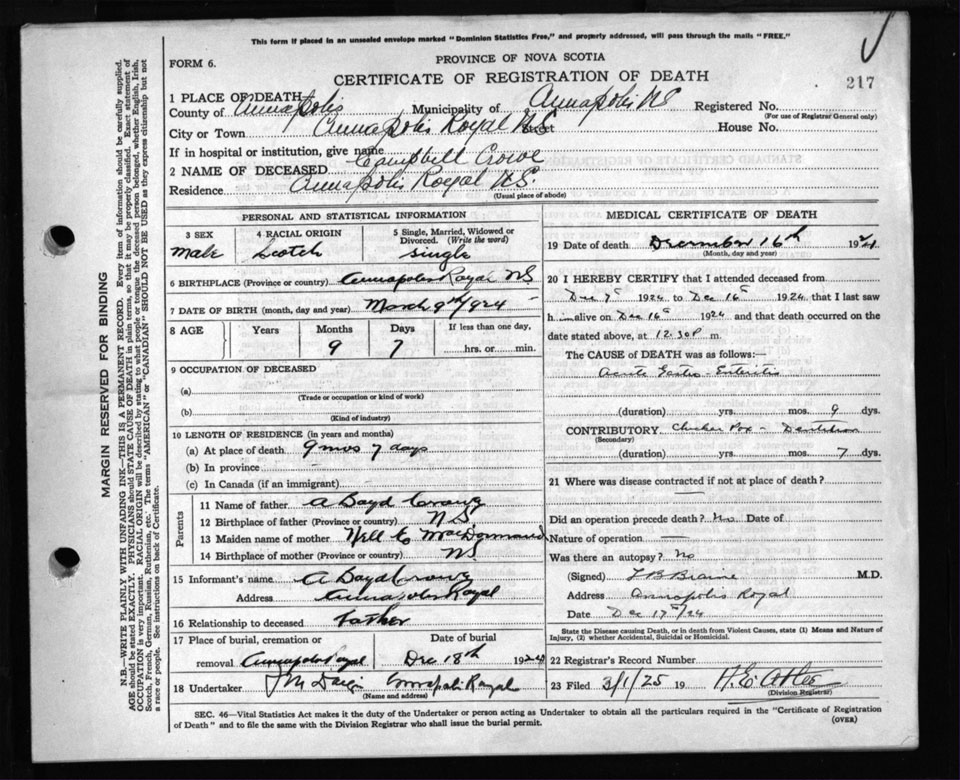 This form if placed in an unsealed envelope marked "Dominion Statistics Free," and properly addressed, will pass through the mails "FREE."
FORM 6.
PROVINCE OF NOVA SCOTIA
217
CERTIFICATE OF REGISTRATION OF DEATH
1 PLACE OF DEATH
County of Annapolis Municipality of Annapolis NS Registered No.
(For use of Registrar General only)
City or Town Annapolis Royal N.S Street House No.
If in hospital or institution, give name
2 NAME OF DECEASED Campbell Crowe
Residence Annapolis Royal N.S.
(Usual place of abode)
PERSONAL AND STATISTICAL INFORMATION
3 SEX 4 RACIAL ORIGIN 5 Single, Married, Widowed or Divorced. (Write the word)
Male Scotch Single
6 BIRTHPLACE (Province or country) Annapolis Royal NS
7 DATE OF BIRTH (month, day and year) March 9th 1924
8 AGE Years Months Days If less than one day,
9 7 hrs. or min.
9 OCCUPATION OF DECEASED
(a)
(Trade or occupation or kind of work)
(b)
(Kind of industry)
10 LENGTH OF RESIDENCE (in years and months)
(a) At place of death 9 mos 7 days
(b) In province
(c) In Canada (if an immigrant)
Parents
11 Name of father A Boyd Crowe
12 Birthplace of father (Province or country) N S
13 Maiden name of mother
14 Birthplace of mother (Province or country) NS
15 Informant's name A Boyd Crowe
Address Annapolis Royal
16 Relationship to deceased father
17 Place of burial, cremation or Date of burial
removal Annapolis Royal Dec 18th 1924
18 Undertaker J M Annapolis Royal
(Name and address)
MEDICAL CERTIFICATE OF DEATH
19 Date of death December 16th 1924
(Month, day and year)
20 I HEREBY CERTIFY that I attended deceased from
Dec 1924 to Dec 16 1924, that I last saw
him alive on Dec 16 1924 and that death occurred on the
date stated above, at 12.30 P m.
The CAUSE of DEATH was as follows:—
Acute Gastro-Enteritis
(duration) yrs. mos. 9 dys.
CONTRIBUTORY Chicken Pox - Dentition
(Secondary)
(duration) yrs. mos. 7 dys.
21 Where was disease contracted if not at place of death?
Did an operation precede death? No Date of
Nature of operation
Was there an autopsy? No
(Signed) L B Braine M.D.
Address Annapolis Royal
Date Dec 17th/24
State the Disease causing Death, or in death from Violent Causes, state (1) Means and Nature of
Injury, (2) whether Accidental, Suicidal or Homicidal.
22 Registrar's Record Number
23 Filed 3/1/25 19
(Division Registrar)
SEC. 46—Vital Statistics Act makes it the duty of the Undertaker or person acting as Undertaker to obtain all the particulars required in the "Certificate of Registration
of Death" and to file the same with the Division Registrar who shall issue the burial permit.
(OVER)
MARGIN RESERVED FOR BINDING
N.B.—WRITE PLAINLY WITH UNFADING INK—THIS IS A PERMANENT RECORD. Every item of information should be carefully supplied.
AGE should be stated EXACTLY. PHYSICIANS should STATE CAUSE OF DEATH in plain terms, so that it may be properly classified. Exact statement of
OCCUPATION is very important. RACIAL ORIGIN will be described by stating to what people or tongue the deceased person belonged, whether English, Irish,
Scotch, French, German, Russian, Ruthenian, etc. The terms "AMERICAN" or "CANADIAN" SHOULD NOT BE USED as they express citizenship but not
a race or people. See instructions on back of Certificate.